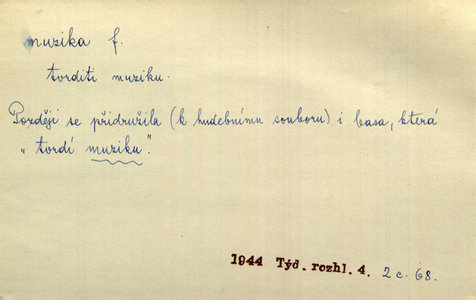 muzika f.
tvrditi muziku.
Později se přidružila (k hudebnímu souboru) i basa, která
„tvrdí muziku".
1944 Týd. rozhl. 4. 2 c. 68.